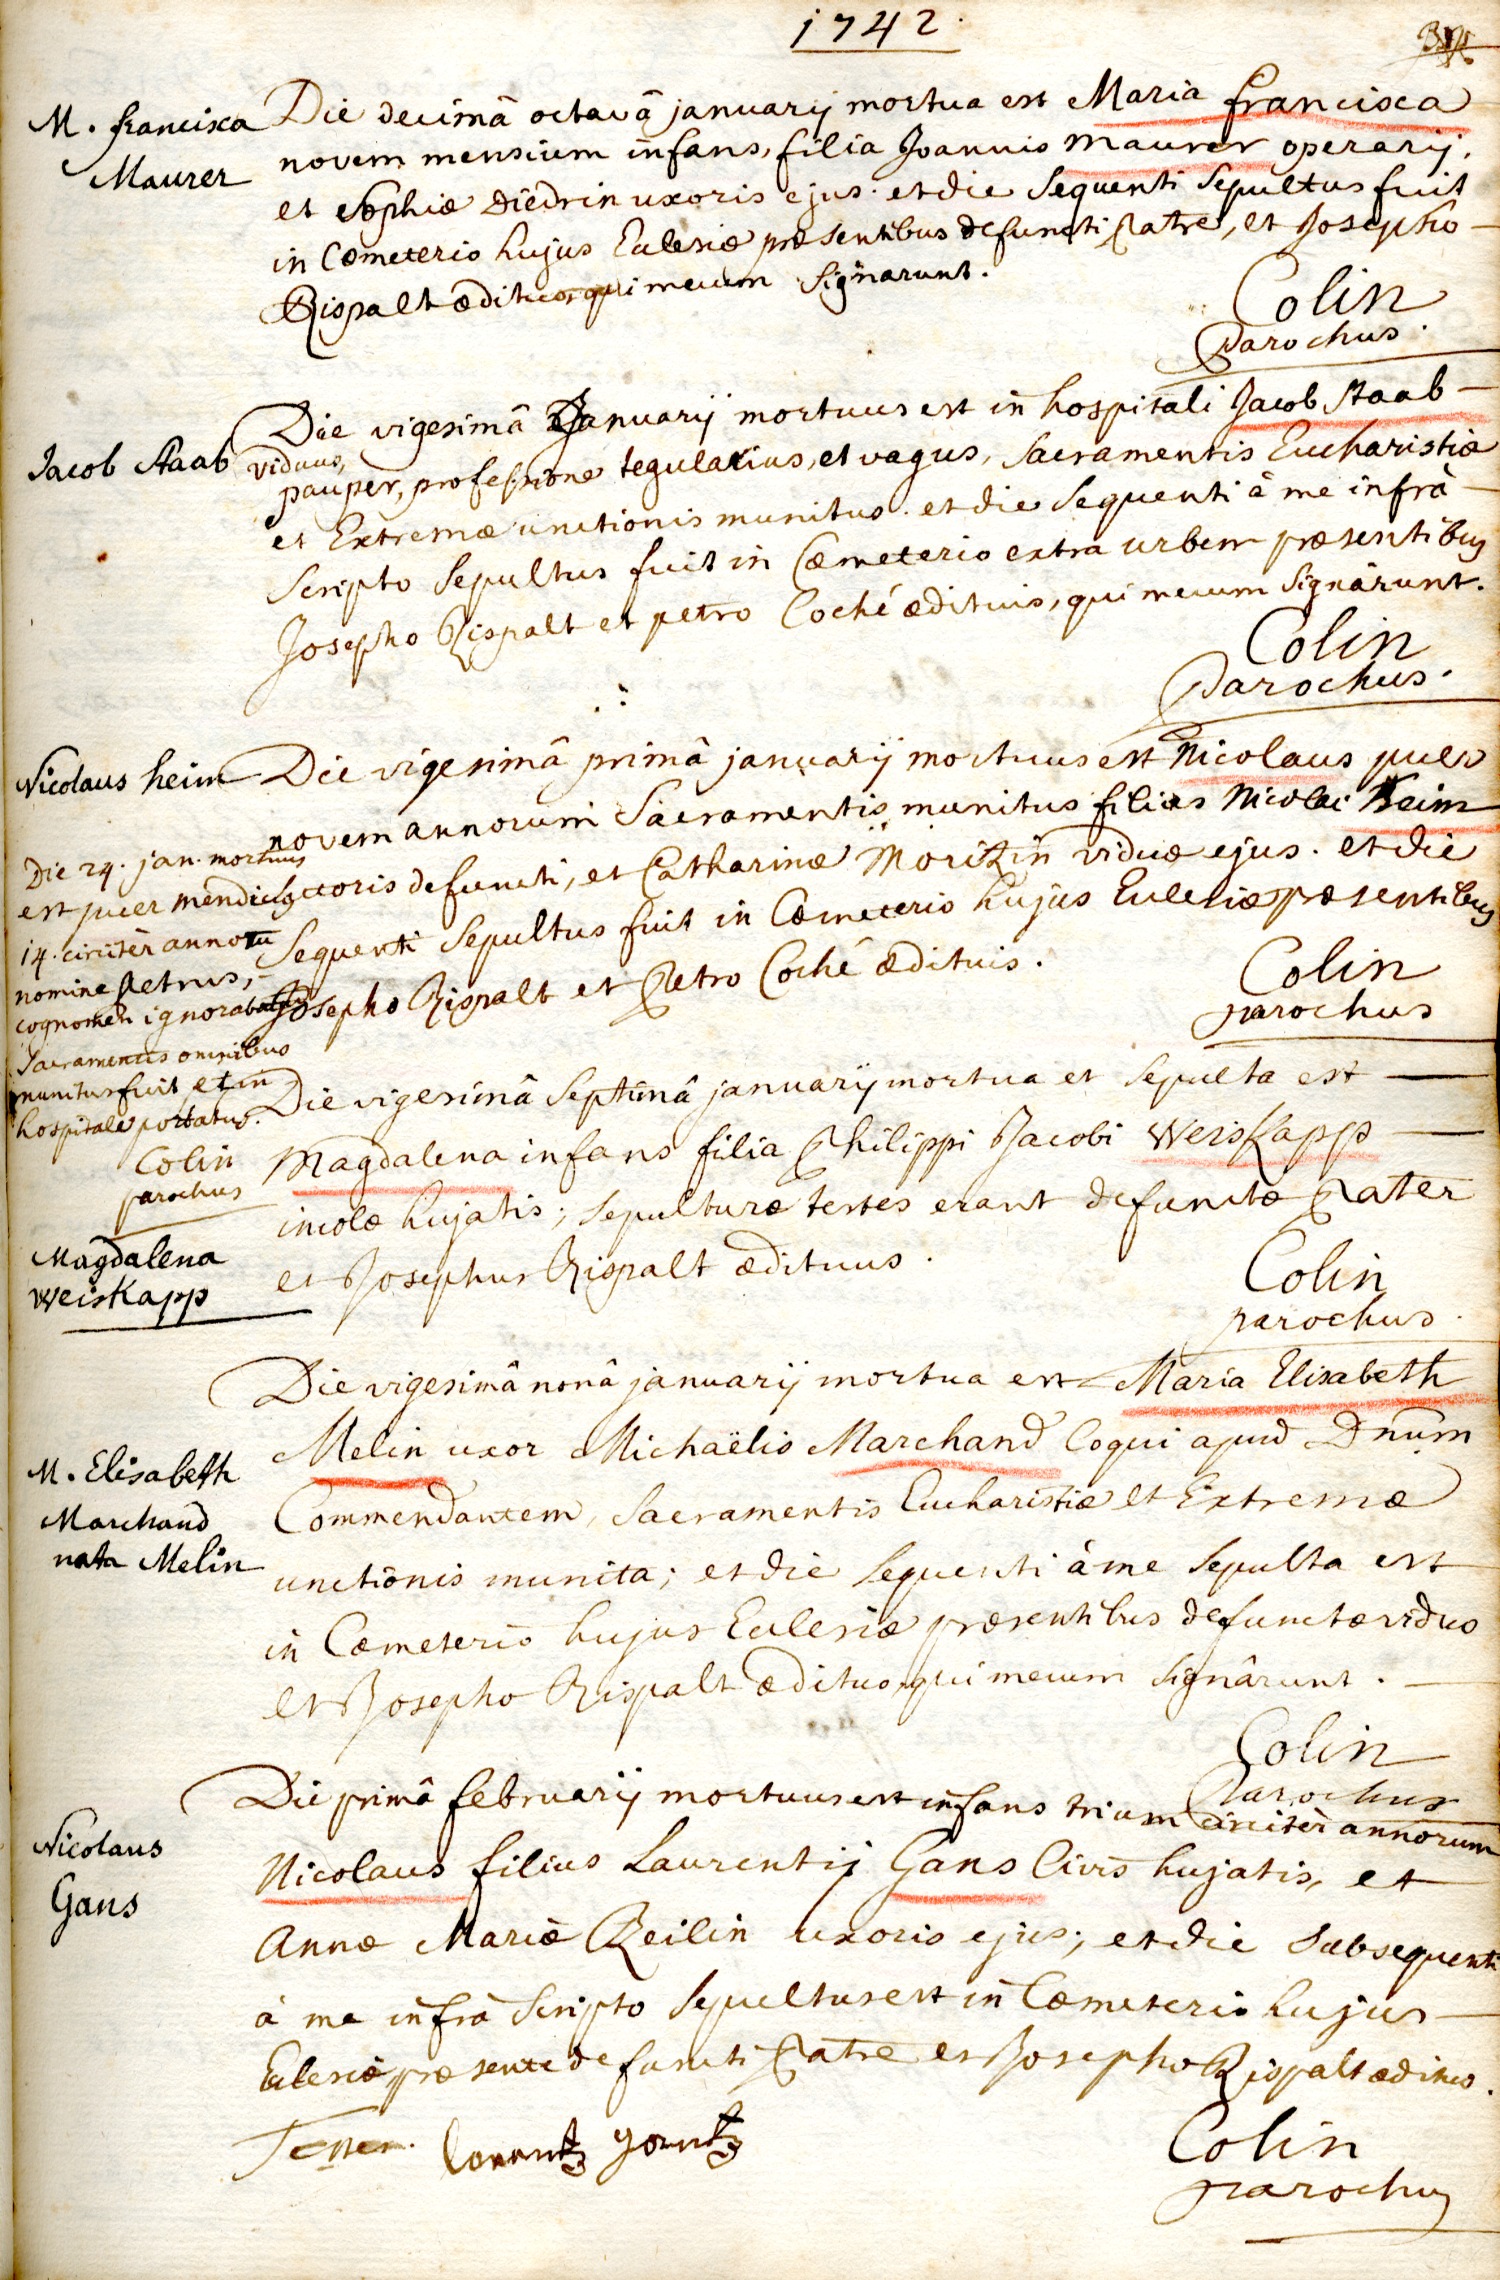 1742.
M. francisca
Maurer
Die decimâ octavâ januarij mortua est Maria francisca
novem mensium infans, filia Joannis Maurer operarij,
et Sophiæ Diedrin uxoris ejus. et die sequenti sepultus fuit
in Cœmeterio hujus Eclesiæ præsentibus defuncti Patre, et Josepho
Rispalt ædituo, qui mecum signarunt.
Colin
Parochus.
Jacob Staab
Die vigesimâ Januarij mortuus est in hospitali Jacob Staab
viduus,
pauper, professione tegularius, et vagus, Sacramentis Eucharistiæ
et Extremæ unctionis munitus. et die sequenti â me infrà
scripto sepultus fuit in Cœmeterio extra urbem præsentibus
Josepho Rispalt et petro Coché ædituis, qui mecum signârunt.
Colin
Parochus.
Nicolaus heim
Die vigesimâ primâ januarij mortuus est Nicolaus puer
novem annorum Sacramentis munitus filius Nicolai Heim
uxoris defuncti, et Catharinæ Moritzin viduæ ejus. et die
sequenti sepultus fuit in Cœmeterio hujus Eclesiæ præsentibus
Josepho Rispalt et Petro Coché ædituis.
Colin
parochus
Die 24. jan. mortuus
est puer mendicus
14. circitèr annorū
nomine Petrus,
cognomen ignorabatur
Sacramentis omnibus
munitus fuit et in
hospitale portatus.
Colin
parochus
Magdalena
Weiskapp
Die vigesimâ septimâ januarij mortua et sepulta est
Magdalena infans filia Philippi Jacobi Weiskapp
incolæ hujatis; sepulturæ testes erant defunctæ Pater
et Josephus Rispalt ædituus.
Colin
parochus.
M. Elisabeth
Marchand
nata Melin
Die vigesimâ nonâ januarij mortua est Maria Elisabeth
Melin uxor Michaëlis Marchand Coqui apud Dnum
Commendantem, Sacramentis Eucharistiæ et Extremæ
unctionis munita; et die sequenti à me sepulta est
in Cœmeterio hujus Eclesiæ præsentibus defunctæ viduo
et Josepho Rispalt ædituo, qui mecum signârunt.
Colin
Parochus
Nicolaus
Gans
Die primâ februarij mortuus est infans trium circitèr annorum
Nicolaus filius Laurentij Gans Civis hujatis, et
Annæ Mariæ Reilin uxoris ejus; et die subsequenti
à me infrà scripto sepultus est in Cœmeterio hujus
Eclesiæ, præsente defuncti Patre et Josepho Rispalt ædituo.
Colin
parochus